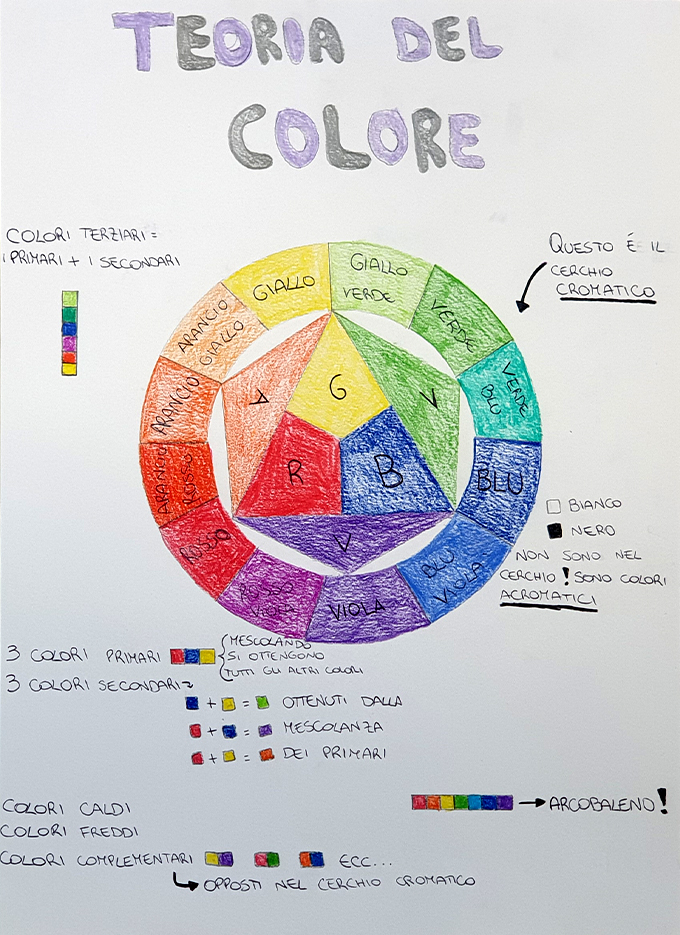 TEORIA DEL
COLORE
COLORI TERZIARI =
I PRIMARI + I SECONDARI
QUESTO É IL
CERCHIO
CROMATICO
GIALLO
GIALLO
VERDE
VERDE
VERDE
BLU
BLU
BLU
VIOLA
VIOLA
ROSSO
VIOLA
ROSSO
ARANCIO
ROSSO
ARANCIO
ARANCIO
GIALLO
A
G
V
R
B
V
BIANCO
NERO
NON SONO NEL
CERCHIO ! SONO COLORI
ACROMATICI
3 COLORI PRIMARI
(MESCOLANDO
SI OTTENGONO
TUTTI GLI ALTRI COLORI
3 COLORI SECONDARI =
+ = OTTENUTI DALLA
+ = MESCOLANZA
+ = DEI PRIMARI
COLORI CALDI
COLORI FREDDI
→ ARCOBALENO!
COLORI COMPLEMENTARI ECC...
↳ OPPOSTI NEL CERCHIO CROMATICO